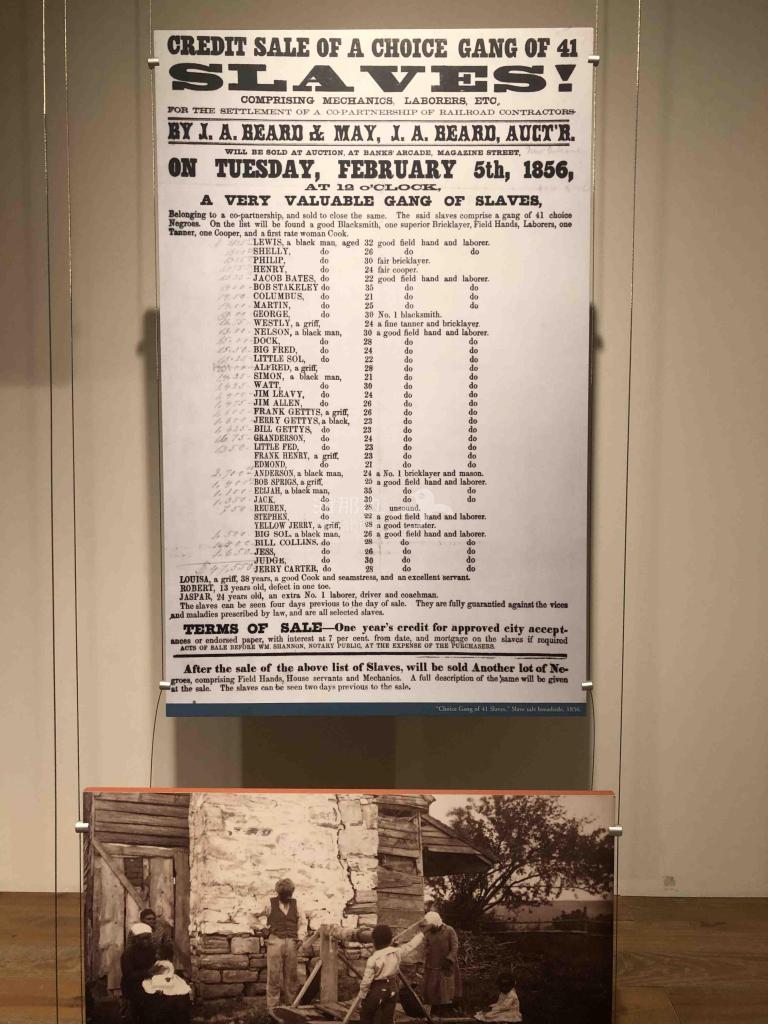 CREDIT SALE OF A CHOICE GANG OF 41
SLAVES!
COMPRISING MECHANICS, LABORERS, ETC,
FOR THE SETTLEMENT OF A CO-PARTNERSHIP OF RAILROAD CONTRACTORS
BY J. A. BEARD & MAY, J. A. BEARD, AUCT'R.
WILL BE SOLD AT AUCTION, AT BANKS' ARCADE, MAGAZINE STREET,
ON TUESDAY, FEBRUARY 5th, 1856,
AT 12 O'CLOCK,
A VERY VALUABLE GANG OF SLAVES,
Belonging to a co-partnership, and sold to close the same. The said slaves comprise a gang of 41 choice
Negroes. On the list will be found a good Blacksmith, one superior Bricklayer, Field Hands, Laborers, one
Tanner, one Cooper, and a first rate woman Cook.
LEWIS, a black man, aged 32 good field hand and laborer.
SHELLY, do 26 do do
PHILIP, do 30 fair bricklayer.
HENRY, do 24 fair cooper.
JACOB BATES, do 22 good field hand and laborer.
BOB STAKELEY do 35 do do
COLUMBUS, do 21 do do
MARTIN, do 25 do do
GEORGE, do 30 No. 1 blacksmith.
WESTLY, a griff, 24 a fine tanner and bricklayer.
NELSON, a black man, 30 a good field hand and laborer.
DOCK, do 28 do do
BIG FRED, do 24 do do
LITTLE SOL, do 22 do do
ALFRED, a griff, 28 do do
SIMON, a black man, 21 do do
WATT, do 30 do do
JIM LEAVY, do 24 do do
JIM ALLEN, do 26 do do
FRANK GETTYS, a griff, 26 do do
JERRY GETTYS, a black, 23 do do
BILL GETTYS, do 23 do do
GRANDERSON, do 24 do do
LITTLE FED, do 23 do do
FRANK HENRY, a griff, 23 do do
EDMOND, do 21 do do
ANDERSON, a black man, 24 a No. 1 bricklayer and mason.
BOB SPRIGS, a griff, 25 a good field hand and laborer.
ELIJAH, a black man, 35 do do
JACK, do 30 do do
REUBEN, do 28 unsound.
STEPHEN, do 22 a good field hand and laborer.
YELLOW JERRY, a griff, 28 a good teamster.
BIG SOL, a black man, 26 a good field hand and laborer.
BILL COLLINS, do 28 do do
JESS, do 26 do do
JUDGE, do 30 do do
JERRY CARTER, do 28 do do
LOUISA, a griff, 38 years, a good Cook and seamstress, and an excellent servant.
ROBERT, 13 years old, defect in one toe.
JASPAR, 24 years old, an extra No. 1 laborer, driver and coachman.
The slaves can be seen four days previous to the day of sale. They are fully guarantied against the vices
and maladies prescribed by law, and are all selected slaves.
TERMS OF SALE—One year's credit for approved city accept-
ances or endorsed paper, with interest at 7 per cent. from date, and mortgage on the slaves if required
ACTS OF SALE BEFORE WM. SHANNON, NOTARY PUBLIC, AT THE EXPENSE OF THE PURCHASERS.
After the sale of the above list of Slaves, will be sold Another lot of Ne-
groes, comprising Field Hands, House servants and Mechanics. A full description of the same will be given
at the sale. The slaves can be seen two days previous to the sale.
"Choice Gang of 41 Slaves," Slave sale broadside, 1856.